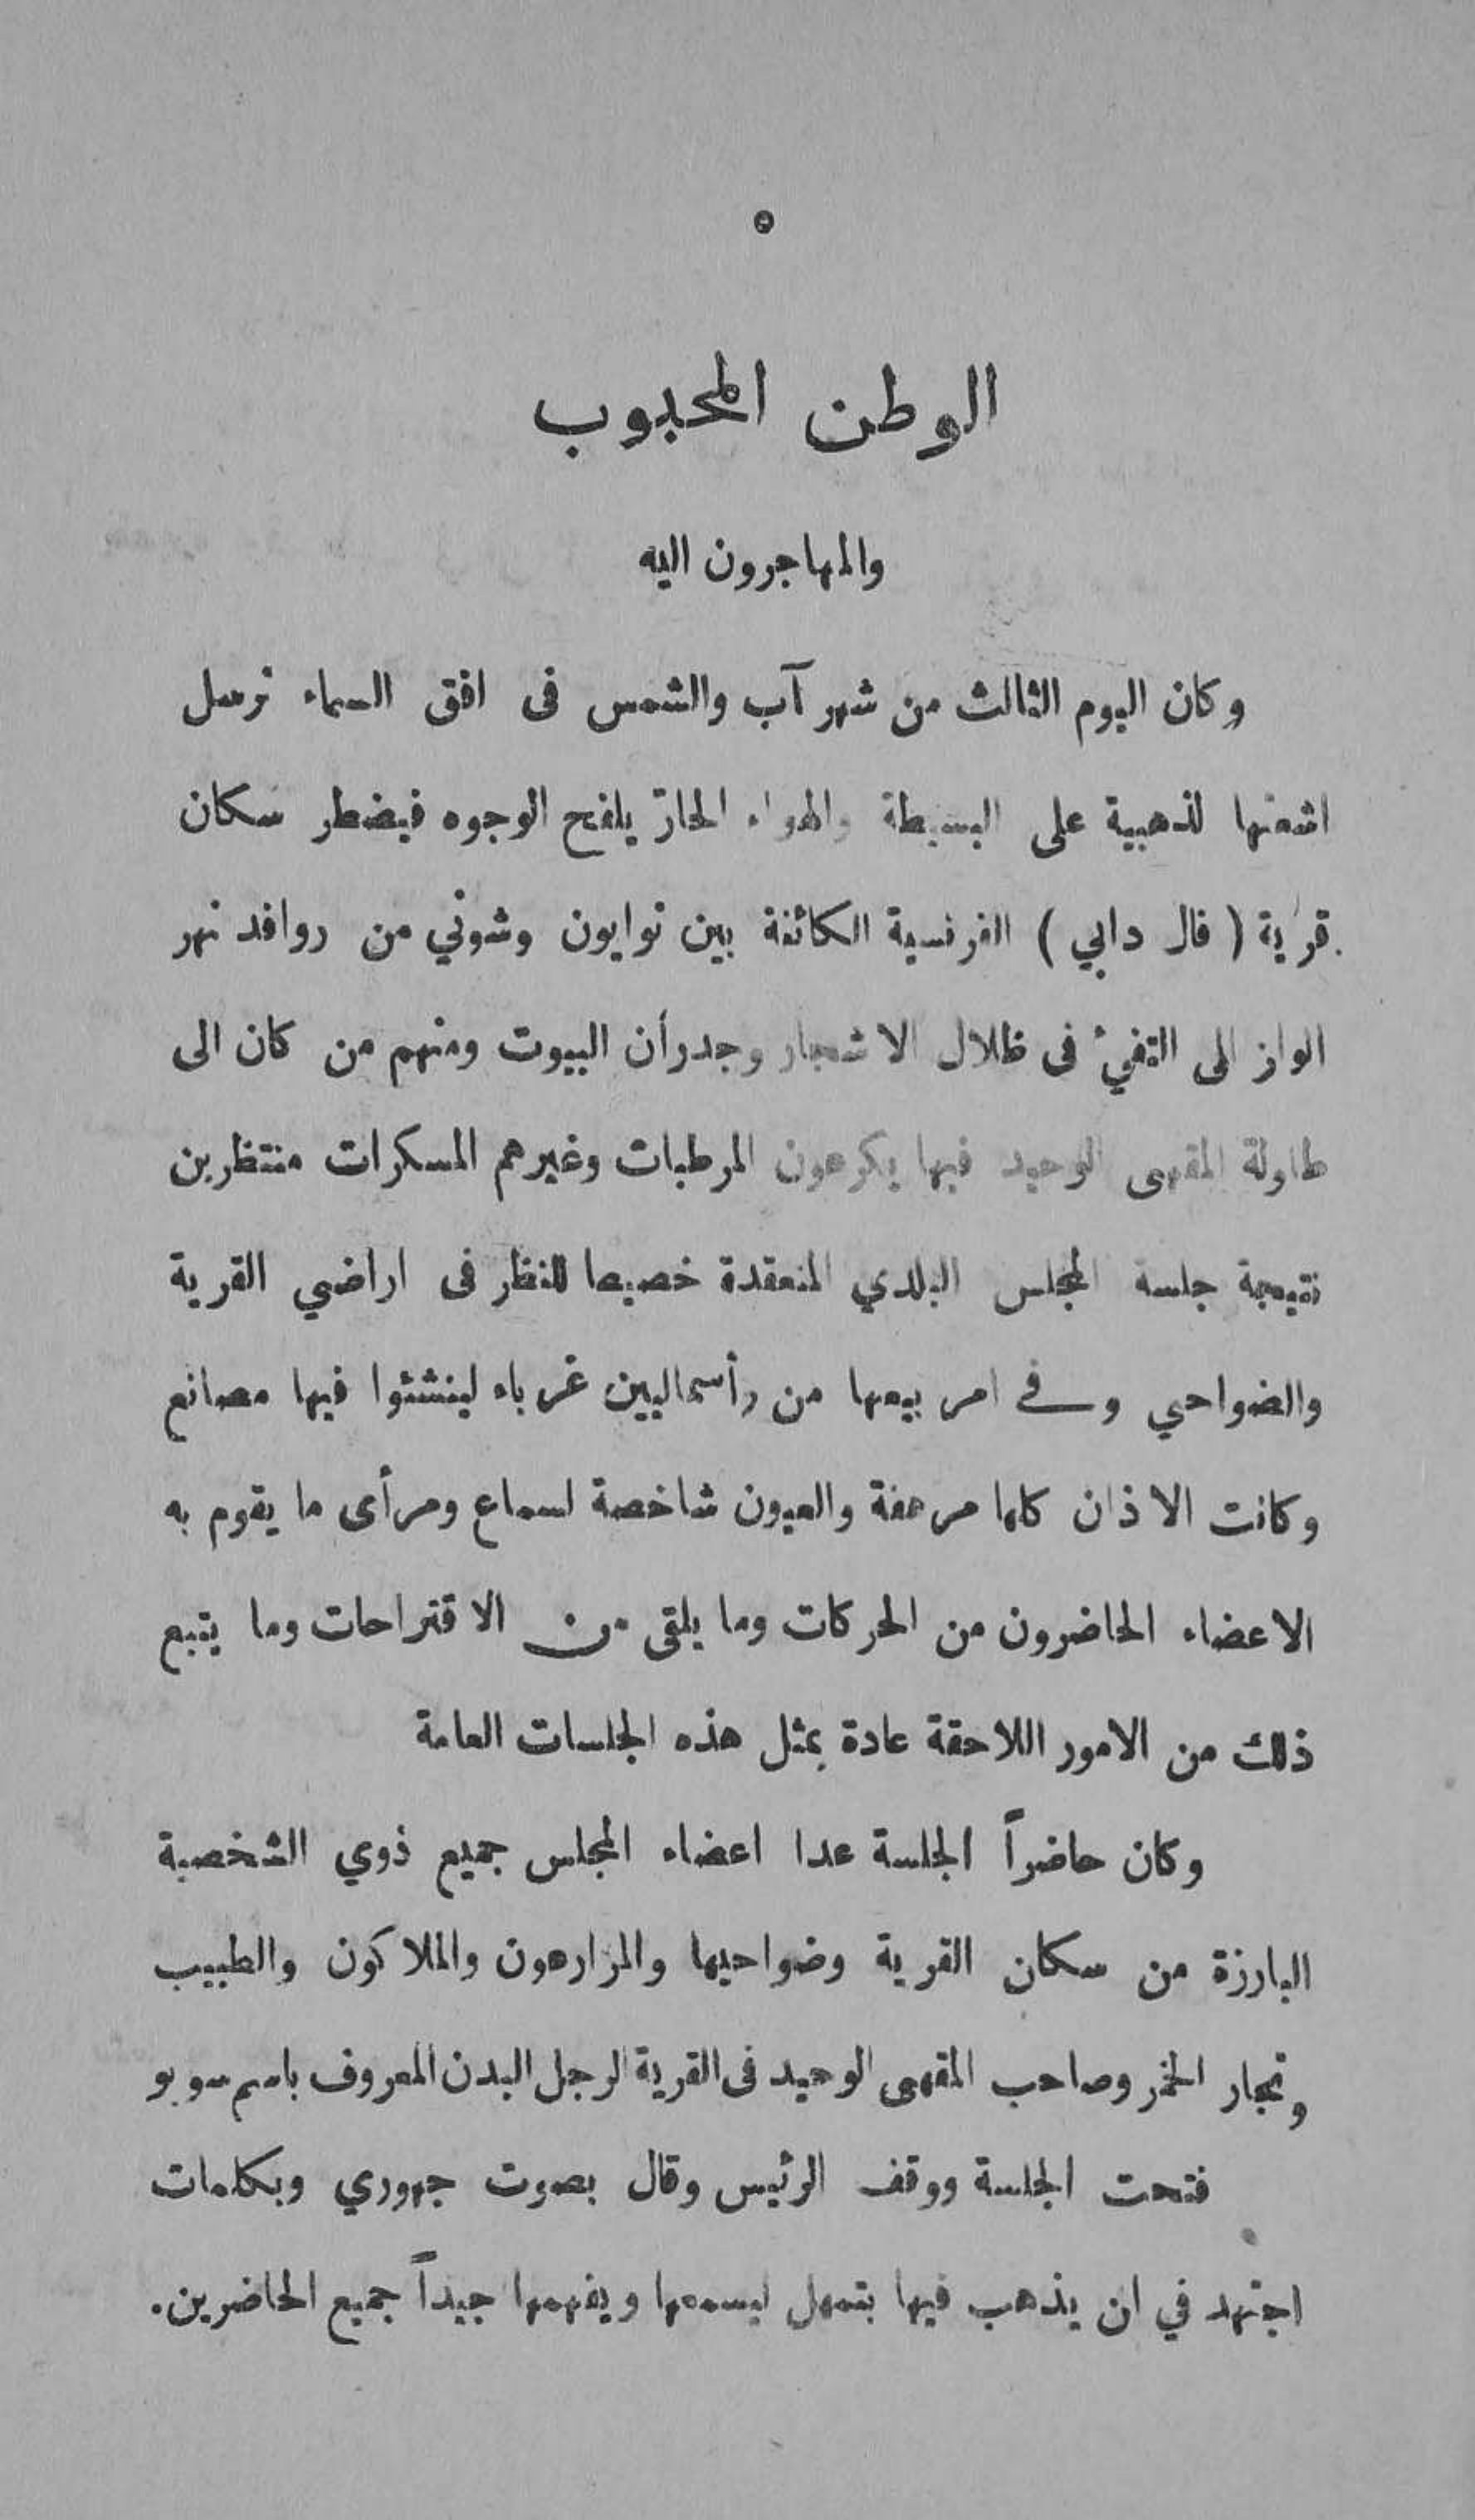 ٥
الوطن المحبوب
والمهاجرون اليه
وكان اليوم الثالث من شهر آب والشمس فى افق السماء ترسل
اشعتها لذهبية على البسيطة والهواء الحارّ يلفح الوجوه فيضطر سكان
قرية ( فال دابي ) الفرنسية الكائنة بين نوايون وشوني من روافد نهر
الواز الى التفيءْ فى ظلال الاشجار وجدرأن البيوت ومنهم من كان الى
طاولة المقهى الوحيد فيها يكرعون المرطبات وغيرهم المسكرات منتظرين
نتيجة جلسة المجلس البلدي المنعقدة خصيصا للنظر فى اراضي القرية
والضواحي وفي امر بيعها من رأسماليين غرباء لينشئوا فيها مصانع
وكانت الاذان كلها مرهفة والعيون شاخصة لسماع ومرأى ما يقوم به
الاعضاء الحاضرون من الحركات وما يلقى من الاقتراحات وما يتبع
ذلك من الامور اللاحقة عادة بمثل هذه الجلسات العامة
وكان حاضراً الجلسة عدا اعضاء المجلس جميع ذوي الشخصية
البارزة من سكان القرية وضواحيها والمزارعون والملاكون والطبيب
وتجار الخمر وصاحب المقهى الوحيد فى القرية الرجل البدن المعروف باسم سوبو
فتحت الجلسة ووقف الرئيس وقال بصوت جهوري وبكلمات
اجتهد في ان يذهب فيها بتمهل ليسمعها ويفهمها جيداً جميع الحاضرين.